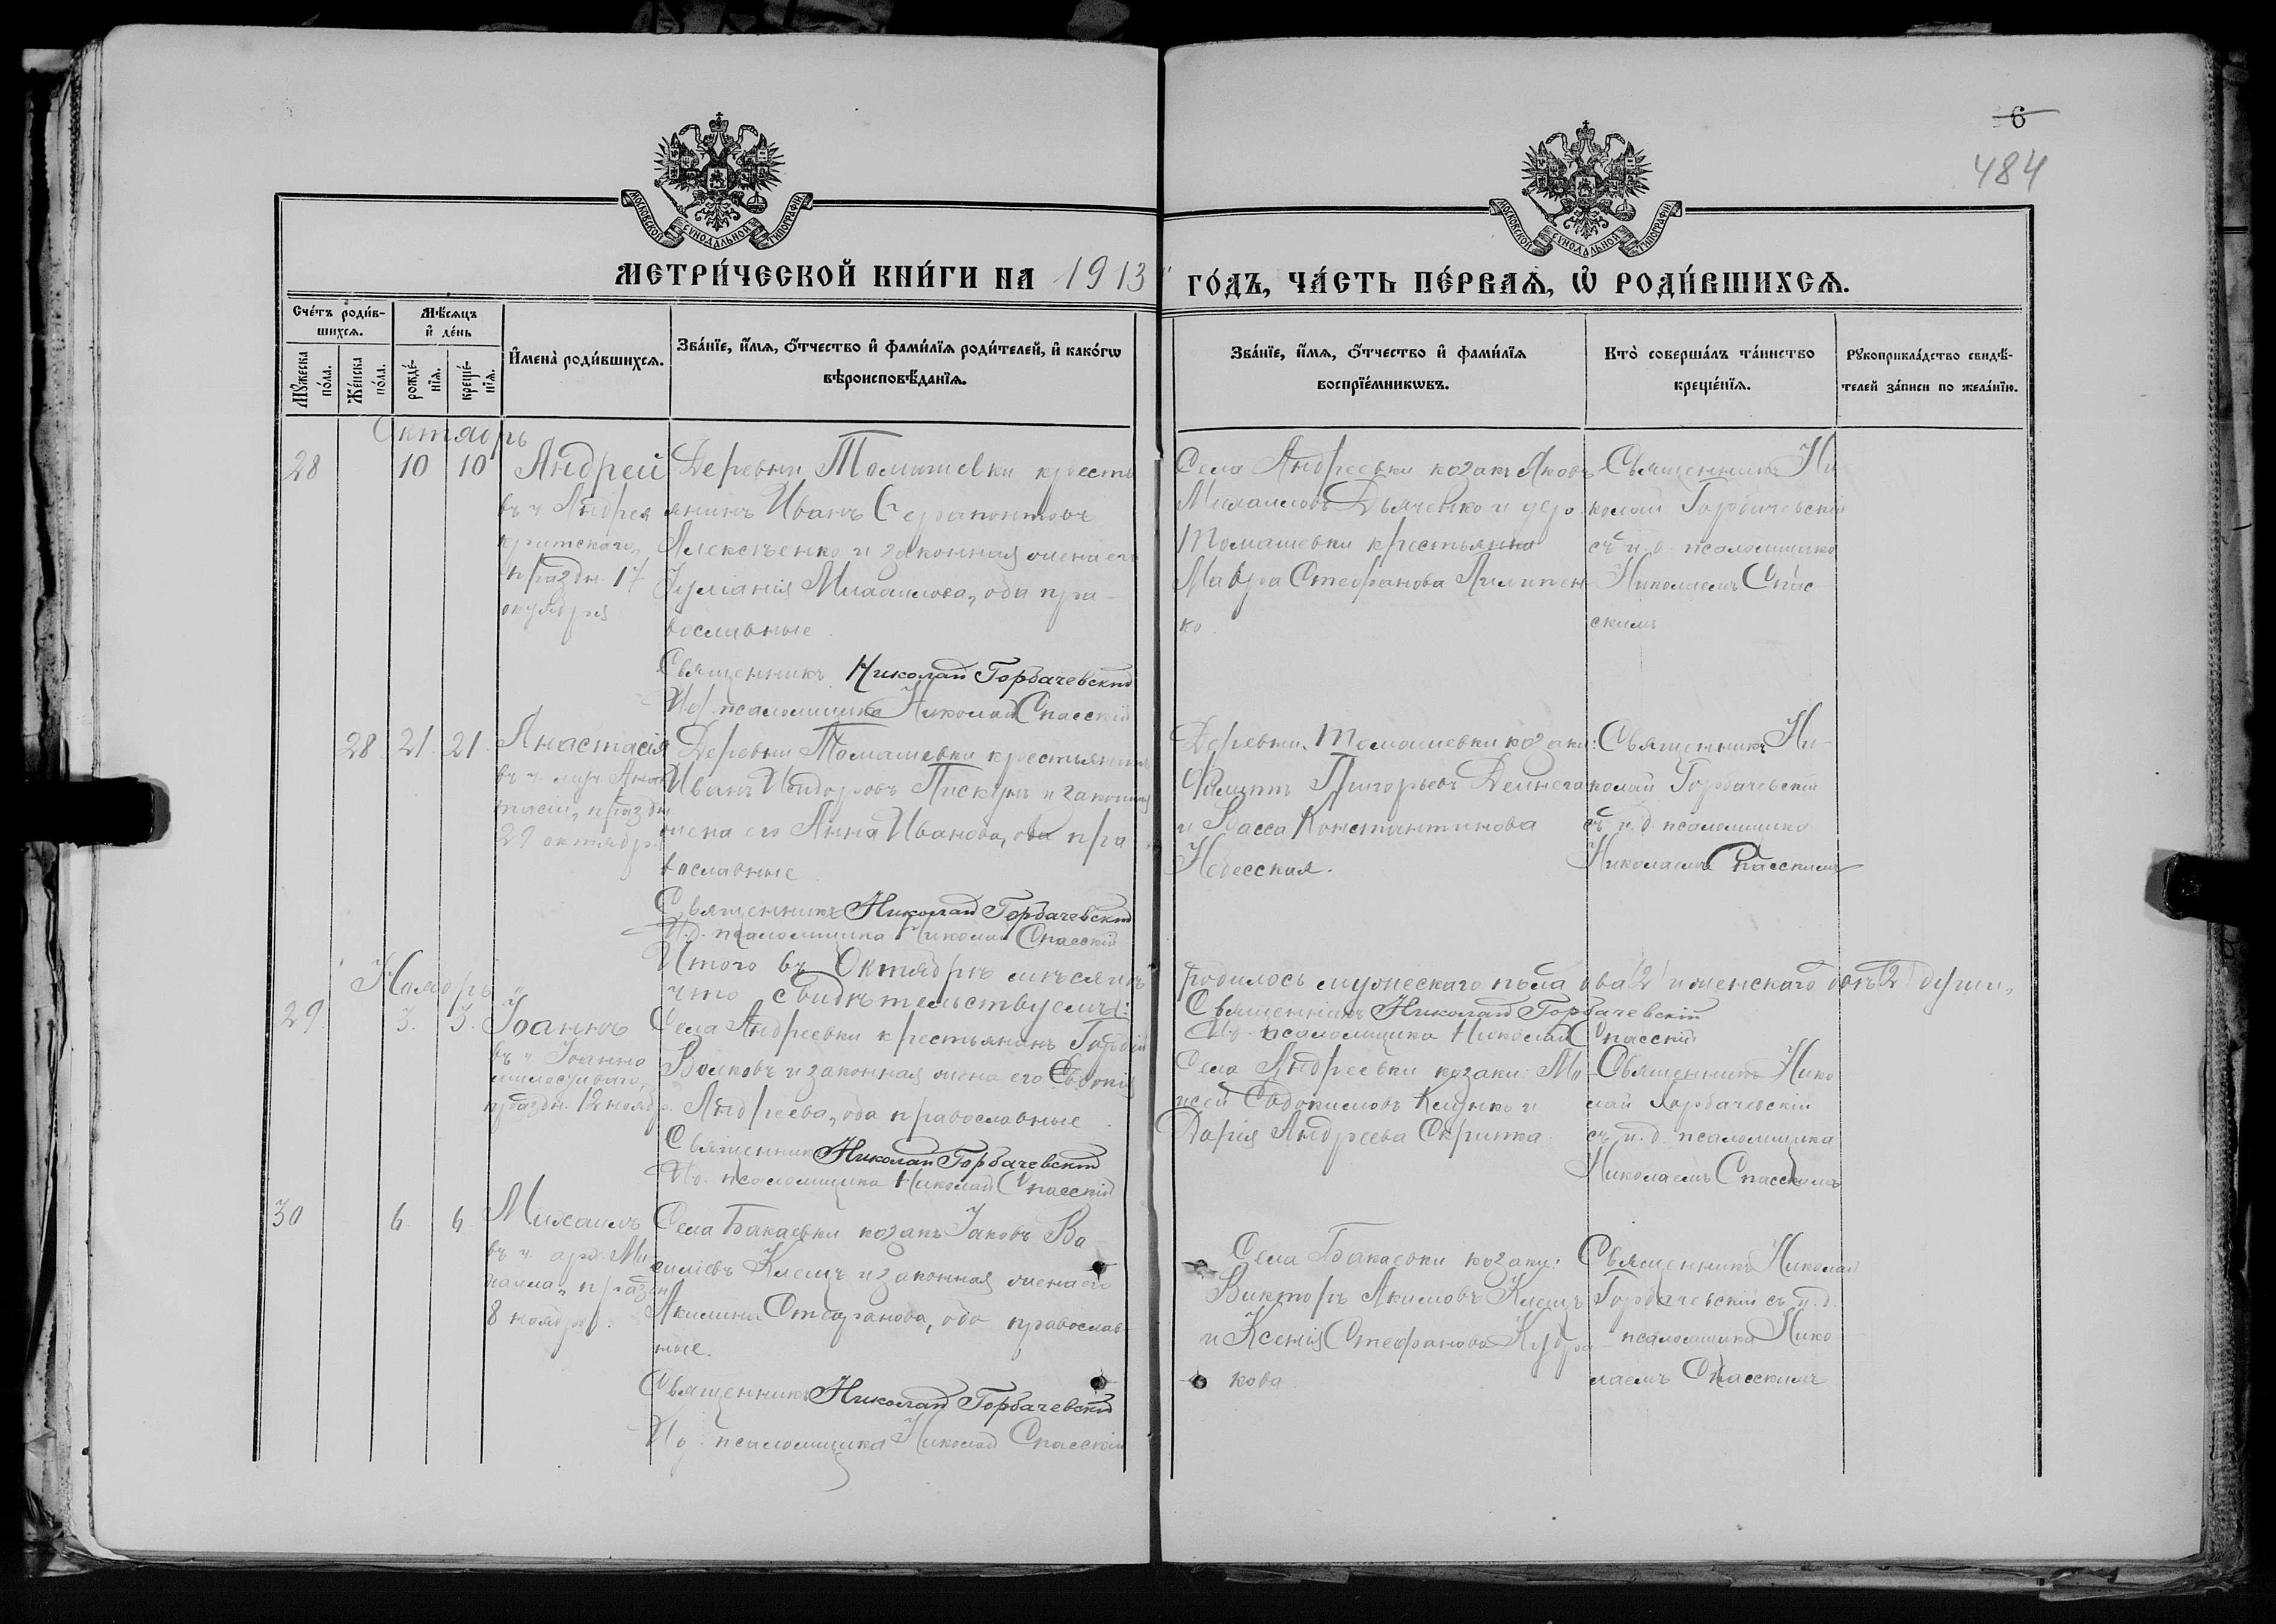 6
484
МОСКОВСКОЙ СУНОДАЛЬНОЙ ТИПОГРАФІИ
МОСКОВСКОЙ СУНОДАЛЬНОЙ ТИПОГРАФІИ
МЕТРИ́ЧЕСКОЙ КНИ́ГИ НА 1913 ГО́ДЪ, ЧА́СТЬ ПЕ́РВАѦ, Ѡ҆ РОДИ́ВШИХСѦ.
Сче́тъ роди́в-
шихсѧ.
Мꙋ́жеска по́ла.
Же́нска по́ла.
Мѣ́сѧцъ
и҆ де́нь
рожде́-
нїѧ.
креще́-
нїѧ.
И҆мена̀ роди́вшихсѧ.
Зва́нїе, и҆́мѧ, ѻ҆́тчество и҆ фами́лїѧ роди́телей, и҆ како́гѡ
вѣроисповѣ́данїѧ.
Зва́нїе, и҆́мѧ, ѻ҆́тчество и҆ фами́лїѧ
воспрїе́мникѡвъ.
Кто̀ соверша́лъ та́инство
креще́нїѧ.
Рꙋкоприкла́дство свидѣ́-
телей за́писи по жела́нїю.
Октябрь
28 10 10
Андрей
въ ч. Андрея
критскаго,
праздн. 17
октября
Деревни Томашевки кресть
янинъ Иванъ Серапонтовъ
Алексѣенко и законная жена его
Іуліанія Михаилова, оба пра-
вославные.
Священникъ Николай Горбачевскій
И.д. псаломщика Николай Спасскій
Села Андреевки козакъ Яковъ
Михаиловъ Дьяченко и дер.
Томашевки крестьянка
Мавра Стефанова Пилипен
ко.
Священникъ Ни
колай Горбачевскій
съ и.д. псаломщика
Николаемъ Спас
скимъ
28 21 21
Анастасія
въ ч. муч. Анас
тасіи, праздн.
29 октябр.
Деревни Томашевки крестьянинъ
Иванъ Исидоровъ Пискунъ и законная
жена его Анна Иванова, оба пра
вославные.
Священникъ Николай Горбачевскій
И.д. псаломщика Николай Спасскій
Деревни Томашевки козаки:
Филиппъ Григорьевъ Дейнега
и Васса Константинова
Небесская.
Священникъ Ни-
колай Горбачевскій
съ и.д. псаломщика
Николаемъ Спасскимъ
Итого въ Октябрѣ мѣсяцѣ родилось мужескаго пола два (2) и женскаго двѣ (2) души,
что свидѣтельствуемъ:
Священникъ Николай Горбачевскій
И.д. псаломщика Николай Спасскій
Ноябрь
29 3. 3.
Іоаннъ
въ ч. Іоанна
милостиваго,
праздн. 12 нояб.
Села Андреевки крестьянинъ Гордій
Волковъ и законная жена его Евфимія
Андреева, оба православные.
Священникъ Николай Горбачевскій
И.д. псаломщика Николай Спасскій
Села Андреевки козаки: Мо
исей Евдокимовъ и
Дарія Андреева Скрипка.
Священникъ Нико
лай Горбачевскій
съ и.д. псаломщика
Николаемъ Спасскимъ
30 6. 6
Михаилъ
въ ч. арх. Ми-
хаила, праздн.
8 ноября.
Села Бакаевки козакъ Іаковъ Ва
силіевъ Клещъ и законная жена его
Акилина Стефанова, оба православ-
ные.
Священникъ Николай Горбачевскій
И.д. псаломщика Николай Спасскій
Села Бакаевки козаки:
Викторъ Акимовъ Клещъ
и Ксенія Стефанова Кудра
кова.
Священникъ Николай
Горбачевскій съ и.д.
псаломщика Нико
лаемъ Спасскимъ